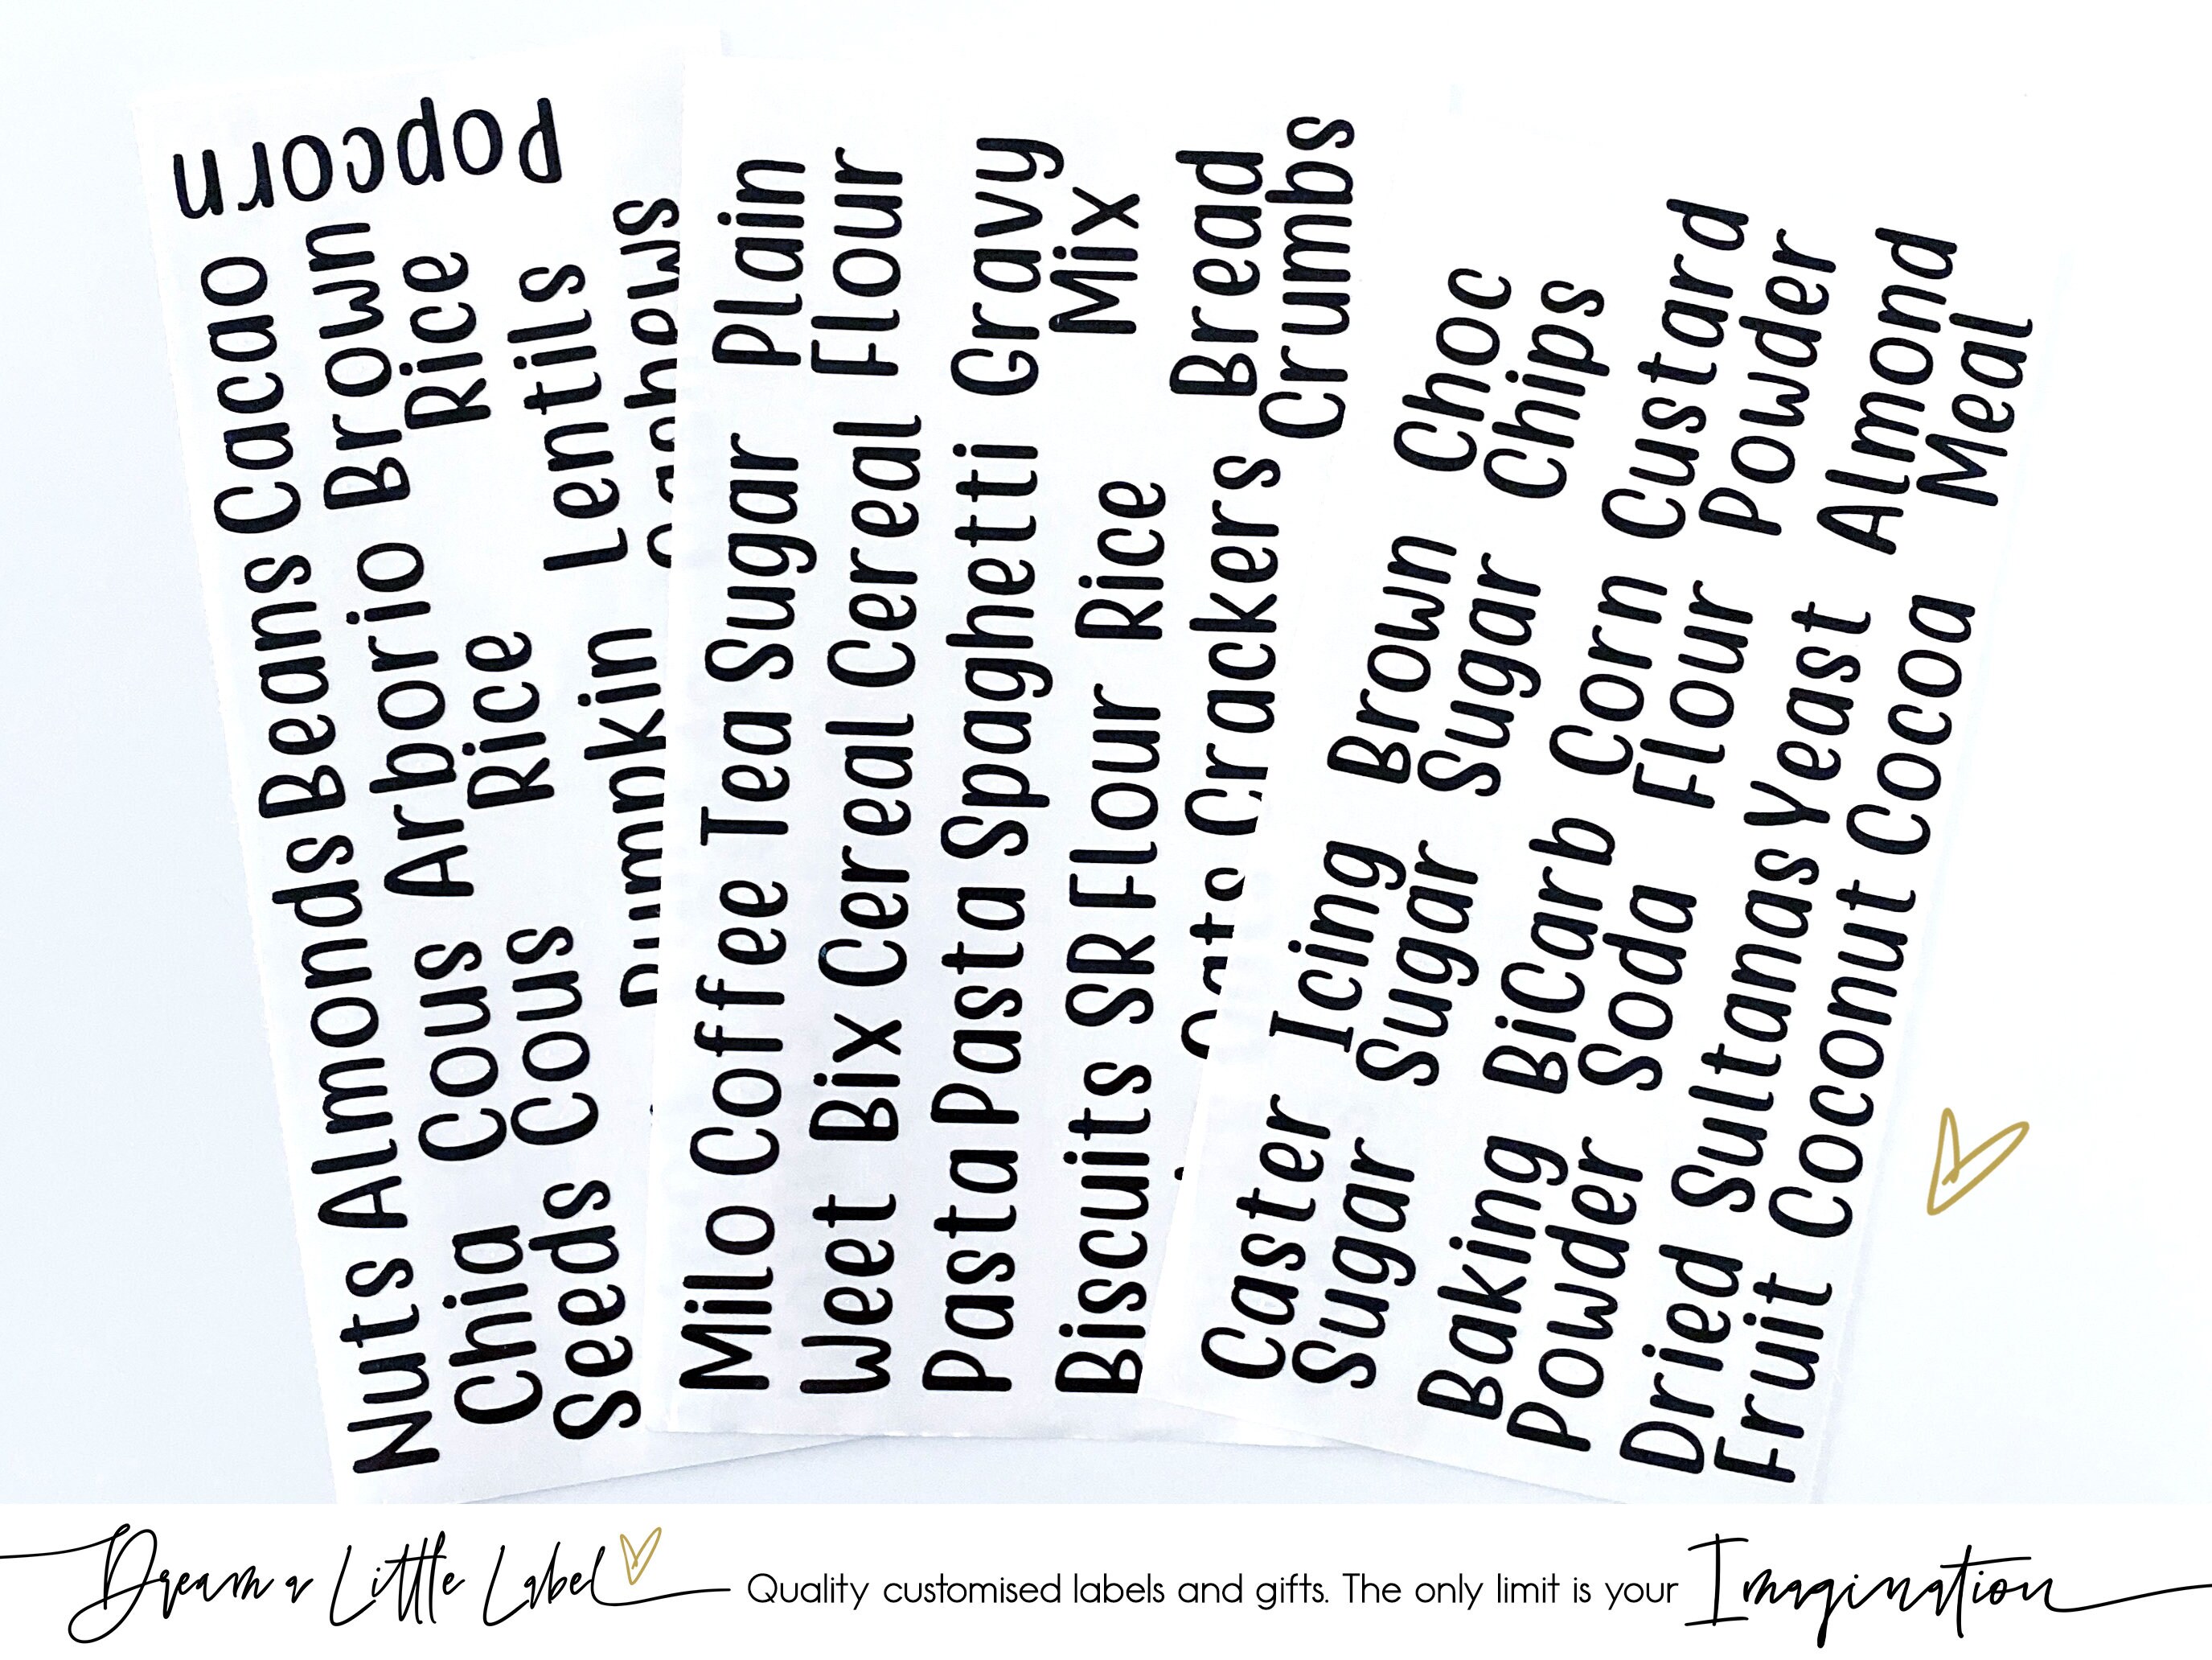 Popcorn
Nuts Almonds Beans Cacao
Chia Seeds
Cous Cous
Arborio Rice
Brown Rice
Lentils
Milo Coffee Tea Sugar
Plain Flour
Weet Bix Cereal Cereal Cereal
Pasta Pasta Spaghetti
Gravy Mix
Biscuits SR Flour Rice
Bread Crumbs
Crackers
Caster Sugar
Icing Sugar
Brown Sugar
Choc Chips
Baking Powder
BiCarb Soda
Corn Flour
Custard Powder
Dried Fruit
Sultanas Yeast
Almond Meal
Coconut Cocoa
Dream a Little Label Quality customised labels and gifts. The only limit is your Imagination